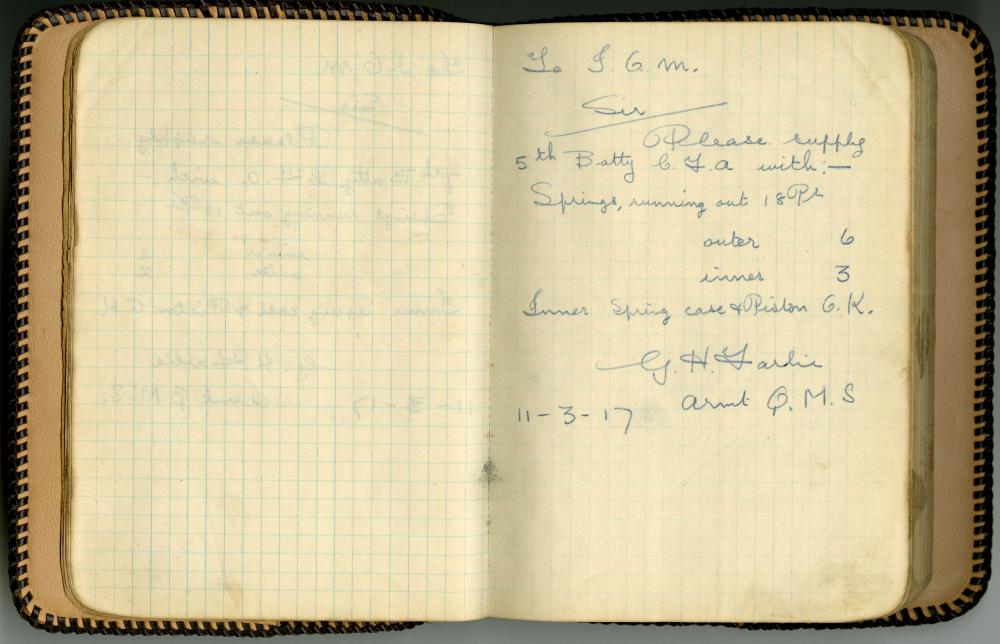 To I.O.M.
Sir
Please supply
5th Batty C.F.A with:—
Springs, running out 18Pr
outer 6
inner 3
Inner Spring case & Piston O.K.
G. H.
11-3-17 Armt Q.M.S